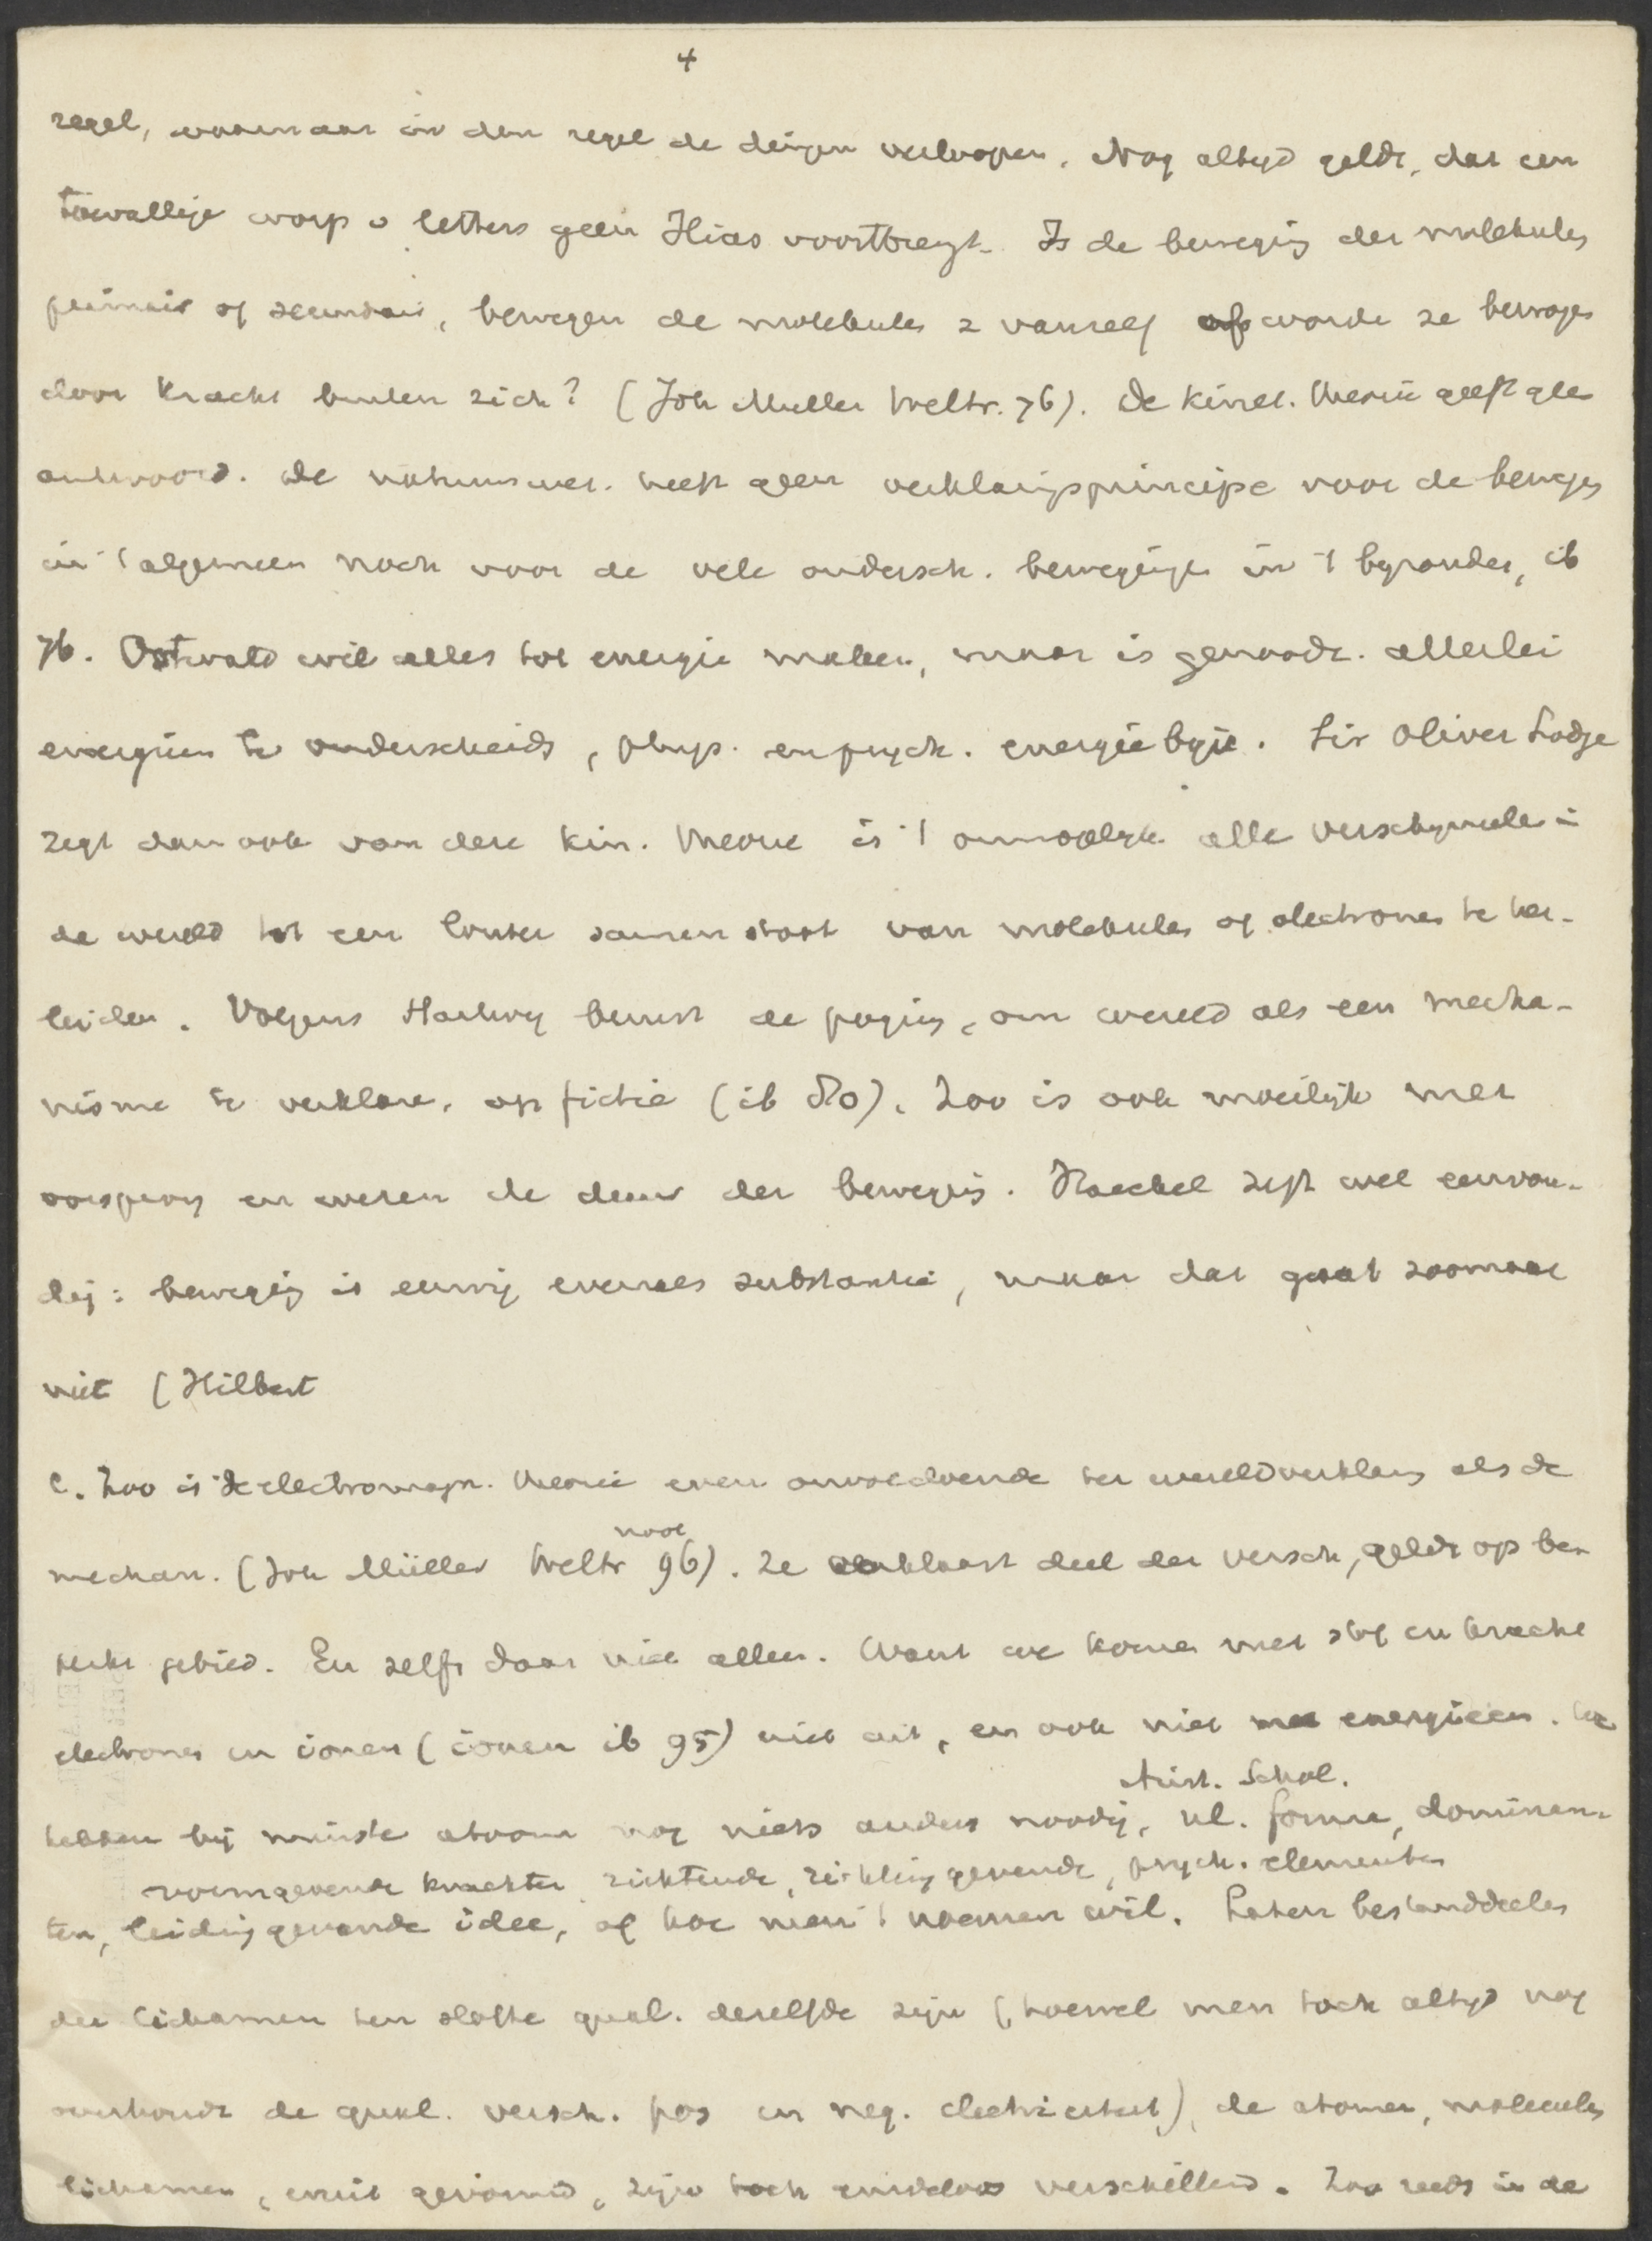 4
regel, waarnaar in den regel de dingen verloopen. Nog altijd geldt, dat een
toevallige worp v letters geen Ilias voortbrengt. Is de beweging der molekules
primair of secundair, bewegen de molekules z vanzelf of worde ze bewogen
door kracht buiten zich? (Joh Muller Weltr. 76). De kinet. theorie geeft geen
antwoord. De natuurwet. heeft geen verklaringsprincipe voor de beweging
in 't algemeen noch voor de vele ondersch. bewegingen in 't byzonder, ib
76. Ostwald wil alles tot energie maken, maar is genoodz. allerlei
energieen te onderscheiden, phys. en psych. energie bijv. Sir Oliver Lodge
zegt dan ook van deze kin. theorie is 't onmogelijk alle verschynselen i
de wereld tot een louter samenstoot van molekules of electronen te her-
leiden. Volgens Hartwig berust de poging, om wereld als een mecha-
nisme te verklaren, op fictie (ib 80). Zoo is ook moeilijk met
oorsprong en wezen de duur der beweging. Haeckel zegt wel eenvou-
dig: beweging is eeuwig evenals substantie, maar dat gaat zoomaar
niet (Hilbert
C. Zoo is de electromagn. theorie even onvoldoende ter wereldverklaring als de
mechan. (Joh Müller Weltr 96). Ze verklaart deel der versch, geldt op be-
perkt gebied. En zelfs daar niet alleen. Want we komen met stof en kracht
electronen en ionen (ionen ib 95) niet uit, en ook niet met energieen. We
Arist. Schol.
hebben bij minste atoom nog niets anders noodig, nl. forma, dominan-
vormgevende krachten richtende, richting gevende, psych. elementen
ten, leiding gevende idee, of hoe men 't noemen wil. Laten bestanddeelen
der lichamen ten slotte qual. dezelfde zijn (hoewel men toch altijd nog
overhoudt de qual. versch. pos en neg. electriciteit), de atomen, moleculen
lichamen, eruit gevormd, zijn toch eindeloos verschillend. Zoo reeds in de